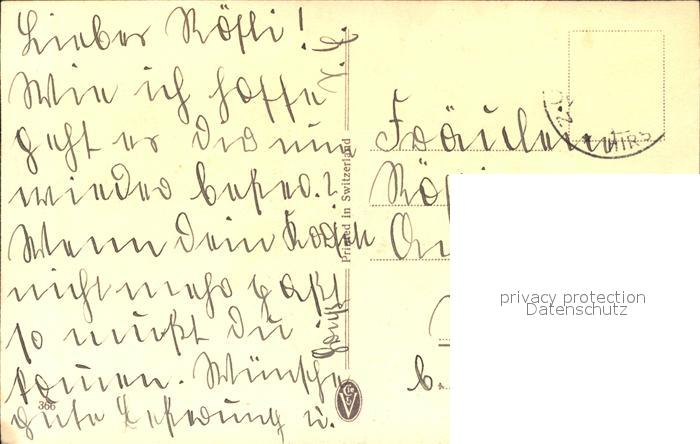 Lieber Rösli!
Wie ich hoffe
geht es dir nun
wieder besser.?
Wenn dein
nicht mehr
so mußt du
kommen. Wünsche
gute Besserung u.
Printed in Switzerland
Fräulein
366
b.
privacy protection
Datenschutz